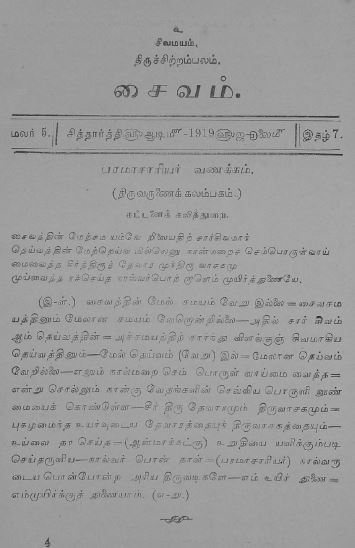 உ
சிவமயம்.
திருச்சிற்றம்பலம்.
சைவம்.
மலர் 5. சித்தார்த்தி௵ ஆடிமீ - 1919௵ ஜூலைமீ இதழ் 7.
பரமாசாரியர் வணக்கம்.
(திருவருணைக் கலம்பகம்.)
கட்டளைக் கலித்துறை.
சைவத்தின் மேற்சம யம்வே றிலையதிற் சார்சிவமாம்
தெய்வத்தின் மேற்தெய்வ மில்லெனு நான்மறைச் செம்பொருள்வாய்
மைவைத்த சீர்த்திருத் தேவார முந்திரு வாசகமும்
உய்வைத்த ரச்செய்த நால்வர்பொற் றாளெம் முயிர்த்துணையே.
(இ-ள்.) சைவத்தின் மேல் சமயம் வேறு இல்லை = சைவசம
யத்தினும் மேலான சமயம் வேறொன்றில்லை—அதில் சார் சிவம்
ஆம் தெய்வத்தின் = அச்சமயத்திற் சார்ந்து விளங்குஞ் சிவமாகிய
தெய்வத்தினும்—மேல் தெய்வம் (வேறு) இல் = மேலான தெய்வம்
வேறில்லை—எனும் நால்மறை செம் பொருள் வாய்மை வைத்த =
என்று சொல்லும் நான்கு வேதங்களின் செவ்விய பொருளி னுண்
மையைக் கொண்டுள்ள—சீர் திரு தேவாரமும் திருவாசகமும் =
புகழமைந்த உயர்வுடைய தேவாரத்தையுந் திருவாசகத்தையும்—
உய்வை தர செய்த = (ஆன்மாக்கட்கு) உறுதியை யளிக்கும்படி
செய்தருளிய—நால்வர் பொன் தாள் = (பரமாசாரியர்) நால்வரு
டைய பொன்போன்ற அரிய திருவடிகளே—எம் உயிர் துணை =
எம்முயிர்க்குத் துணையாம். (எ-று.)
4